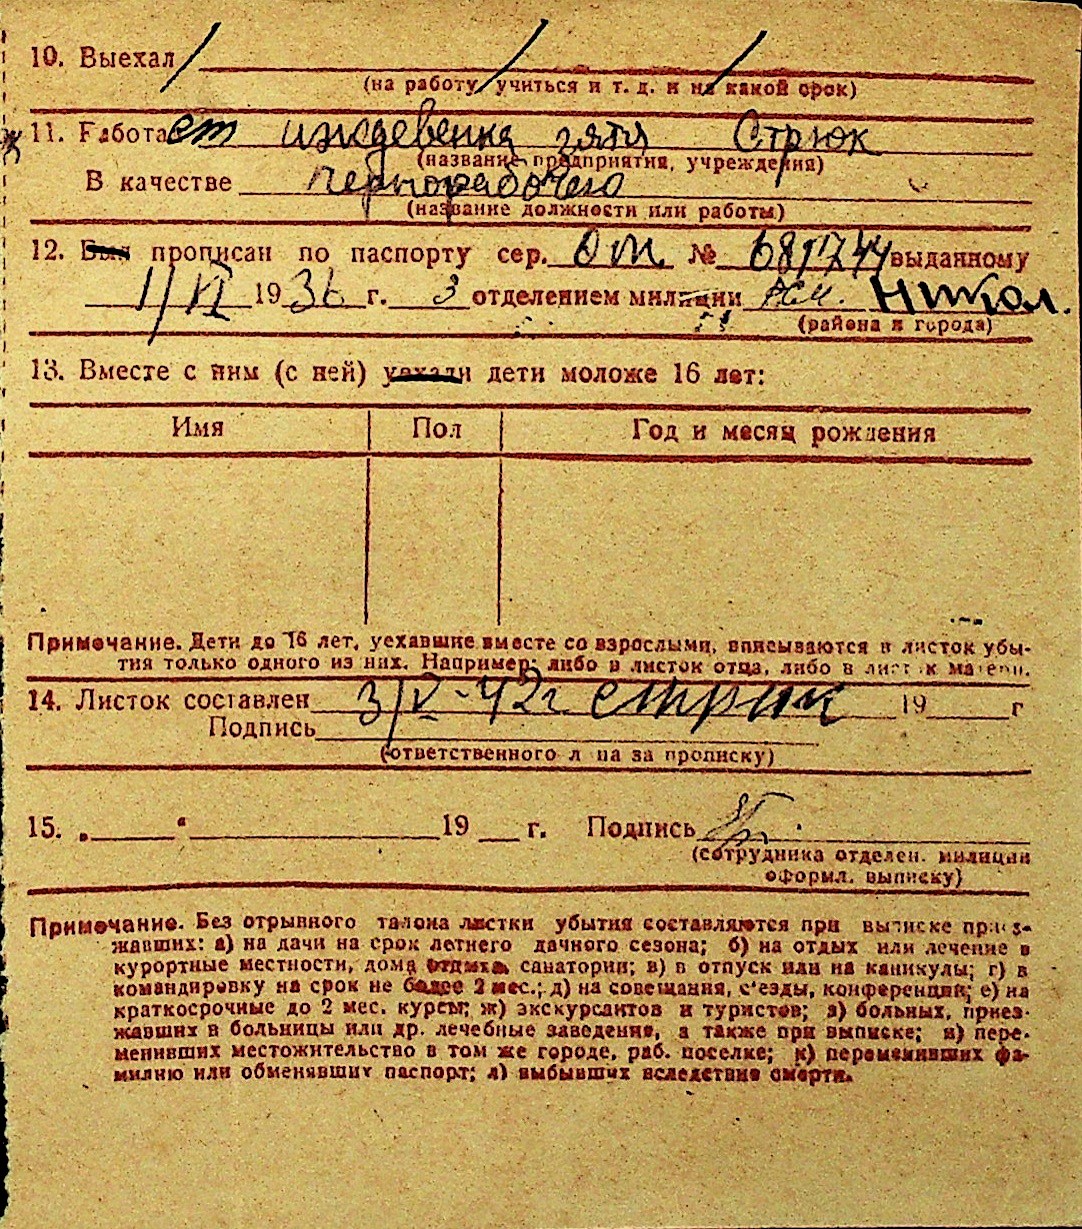 10. Выехал
(на работу, учиться и т. д. и на какой срок)
11. Работает иждевенка зятя Стрюк
(название предприятия, учреждения)
В качестве чернорабочего
(название должности или работы)
12. Был прописан по паспорту сер. ОТ № выданному
1/VI 1936 г. 3 отделением милиции РКМ. Никол.
(района и города)
13. Вместе с ним (с ней) уехали дети моложе 16 лет:
Имя Пол Год и месяц рождения
Примечание. Дети до 16 лет, уехавшие вместе со взрослыми, вписываются в листок убы-
тия только одного из них. Например: либо в листок отца, либо в листок матери.
14. Листок составлен 3/V-42г 19 г
Подпись
(ответственного лица за прописку)
15. „ “ 19 г. Подпись
(сотрудника отделен. милиции
оформл. выписку)
Примечание. Без отрывного талона листки убытия составляются при выписке приез-
жавших: а) на дачи на срок летнего дачного сезона; б) на отдых или лечение в
курортные местности, дома отдыха, санатории; в) в отпуск или на каникулы; г) в
командировку на срок не более 2 мес.; д) на совещания, с'езды, конференции; е) на
краткосрочные до 2 мес. курсы; ж) экскурсантов и туристов; з) больных, приез-
жавших в больницы или др. лечебные заведения, а также при выписке; и) пере-
менивших местожительство в том же городе, раб. поселке; к) переменивших фа-
милию или обменявших паспорт; л) выбывших вследствие смерти.